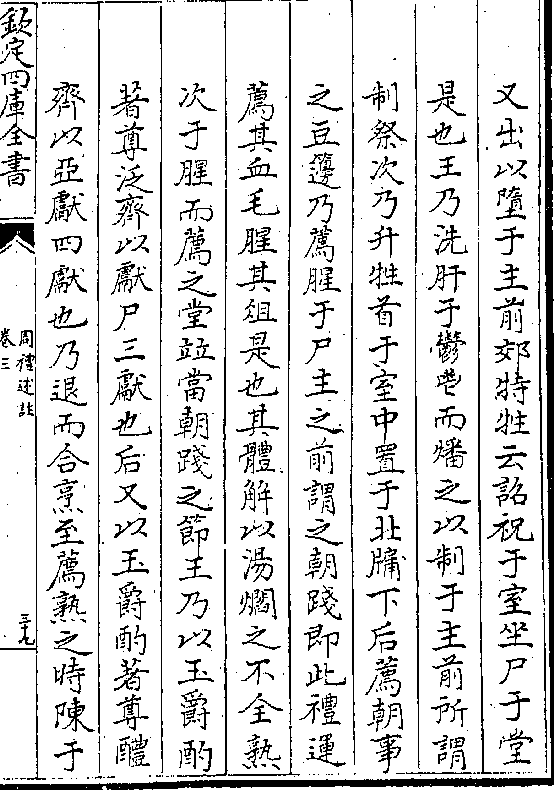 又出以墮于主前郊特牲云詔祝于室坐尸于堂
是也王乃洗肝于鬱鬯而燔之以制于主前所謂
制祭次乃升牲首于室中置于北牖下后薦朝事
之豆籩乃薦腥于尸主之前謂之朝踐即此禮運
薦其血毛腥其俎是也其體解以湯爓之不全熟
次于腥而薦之堂竝當朝踐之節王乃以玉爵酌
著尊泛齊以獻尸三獻也后又以玉爵酌著尊醴
齊以亞獻四獻也乃退而合烹至薦熟之時陳于
欽定四庫全書
周禮述註
卷三
三十九